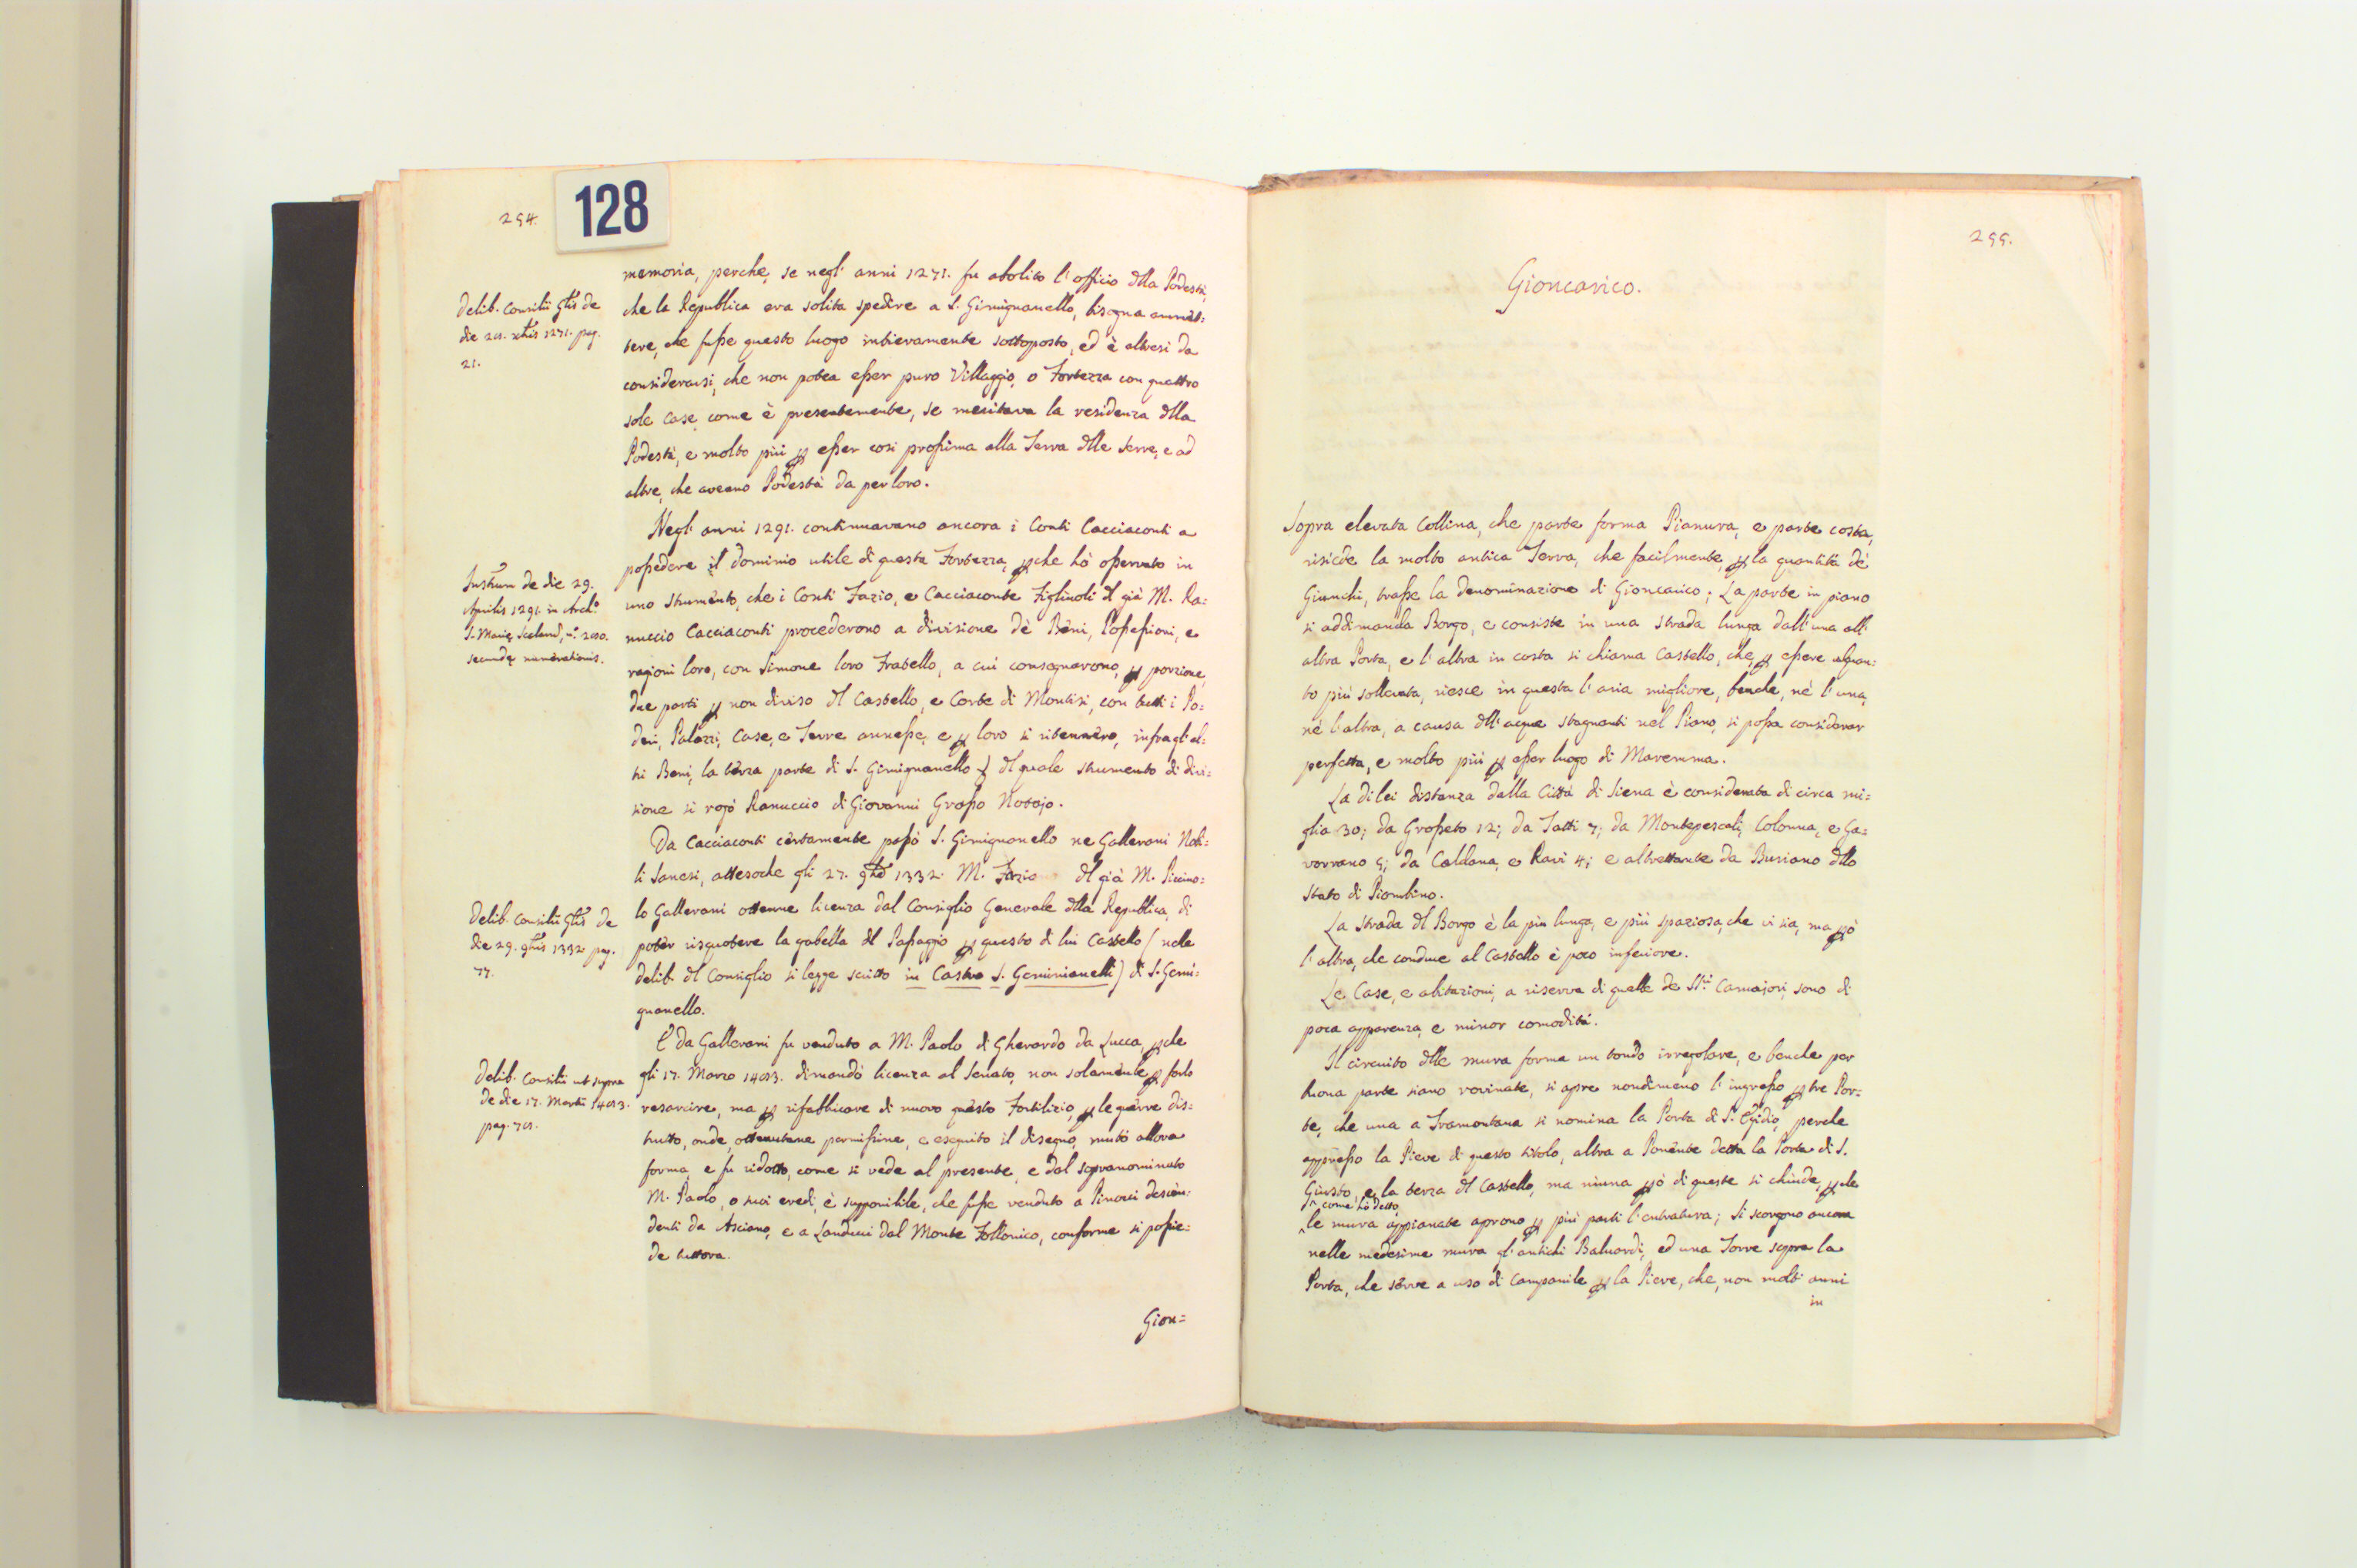 294.
128
memoria, perche, se negl' anni 1271. fu abolito l' officio dlla Podestà,
che la Republica era solita spedire a S. Gimignanello, bisogna amett=
tere, che fusse questo luogo intieramente sottoposto, ed è altresi da
considerarsi, che non potea esser puro Villaggio, o Fortezza con quattro
sole case, come è presentemente, se meritava la residenza dlla
Podestà, e molto più p esser cosi prossima alla Terra dlle Serre, e ad
altre, che aveano Podestà da per loro.
Delib. Consilii Gtis de
die 20. xbris 1271. pag.
21.
Negl' anni 1291. continuavano ancora i Conti Cacciaconti a
possedere il dominio utile di questa Fortezza, pche hò osservato in
uno strumento, che i Conti Fazio, e Cacciaconte Figlinoli dl già M. Ra=
nuccio Cacciaconti procederono a divisione dè Beni, Possessioni, e
ragioni loro, con Simone loro Fratello, a cui consegnarono, p porzione,
due parti p non diviso dl Castello, e Corte di Montisi, con tutti i Po=
deri, Palazzi, Case, e Terre annesse, e p loro si ritennero, infra gl' al=
tri Beni, la terza parte di S. Gimignanello dl quale strumento di divi=
sione si rogò Ranuccio di Giovanni Grosso Notajo.
Instrum de die 29.
Aprilis 1291. in Archo
S. Marie Scalarum, n.
secunde numerationis.
Da Cacciaconti certamente passò S. Gimignanello ne Gallerani Nobi=
li Sanesi, attesoche gli 27. 9bre 1332. M. Fazio dl già M. Piccino=
lo Gallerani ottenne licenza dal Consiglio Generale dlla Republica, di
poter risquotere la gabella dl Passaggio p questo di lui Castello (nelle
delib. dl Consiglio si legge scritto in Castro S. Geminianelli) di S. Gemi=
gnanello.
Delib. Consilii Gtis de
die 29. 9bris 1332. pag.
77.
E da Gallerani fu venduto a M. Paolo di Gherardo da Lucca, pche
gli 17. Marzo 1403. dimandò licenza al Senato, non solamente p farlo
resarcire, ma p rifabbricare di nuovo questo Fortilizio, p le guerre dis=
trutto, onde, ottenutane permissine, e eseguito il disegno, mutò allora
forma, e fu ridotto, come si vede al presente, e dal sopranominato
M. Paolo, o suoi eredi, è supponibile, che fusse venduto a Pinocci descen=
denti da Asciano, e a Landucci dal Monte Follonico, conforme si possie=
de tuttora.
Delib. Consilii ut supra
de die 17. Martii 1403.
pag. 70.
Gion=
295.
Gioncarico.
Sopra elevata Collina, che parte forma Pianura, e parte costa,
risiede la molto antica Terra, che facilmente, p la quantità dè
Giunchi, trasse la denominazione di Gioncarico; La parte in piano
si addimanda Borgo, e consiste in una strada lunga dall' una all'
altra Porta, e l' altra in costa si chiama Castello, che, p essere alquan=
to più sollevata, riesce in questa l' aria migliore, benche, nè l' una,
nè l' altra, a causa dll' acque stagnanti nel Piano, si possa considerar
perfetta, e molto più p esser luogo di Maremma.
La di lei distanza dalla Città di Siena è considerata di circa mi=
glia 30; da Grosseto 12; da Tatti 7; da Montepescali, Colonna, e Ga=
vorrano 5; da Caldana, e Ravi 4; e altrettante da Buriano dllo
Stato di Piombino.
La Strada dl Borgo è la più lunga, e più spaziosa, che vi sia, ma pò
l' altra, che conduce al Castello è poco inferiore.
Le Case, e abitazioni, a riserva di quelle de SS.ri Camajori, sono di
poca apparenza, e minor comodità.
Il circuito dlle mura forma un tondo irregolare, e benche per
buona parte siano rovinate, si apre nondimeno l' ingresso p tre Por=
te, che una a Tramontana si nomina la Porta di S. Egidio, perche
appresso la Pieve di questo titolo, altra a Ponente detta la Porta di S.
Giusto, e la terza dl Castello, ma niuna pò di queste si chiude, pche
come hò detto,
le mura appianate aprono p più parti l' entratura; Si scorgono ancora
nelle medesime mura gl' antichi Baluardi, ed una Torre sopra la
Porta, che serve a uso di Campanile p la Pieve, che, non molti anni
in